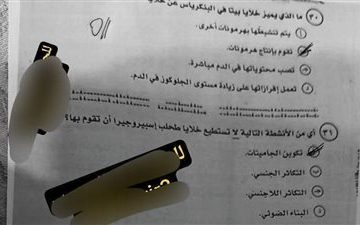 ٣٠) ما الذي يميز خلايا بيتا في البنكرياس عن خلايا
أ) يتم تنشيطها بهرمونات أخرى.
تقوم بإنتاج هرمونات.
ج) تصب محتوياتها في الدم مباشرة.
د) تعمل إفرازاتها على زيادة مستوى الجلوكوز في الدم.
٣١) أي من الأنشطة التالية لا تستطيع خلايا طحلب إسبيروجيرا أن تقوم بها؟
تكوين الجاميتات.
ب) التكاثر الجنسي.
ج) التكاثر اللاجنسي.
د) البناء الضوئي.